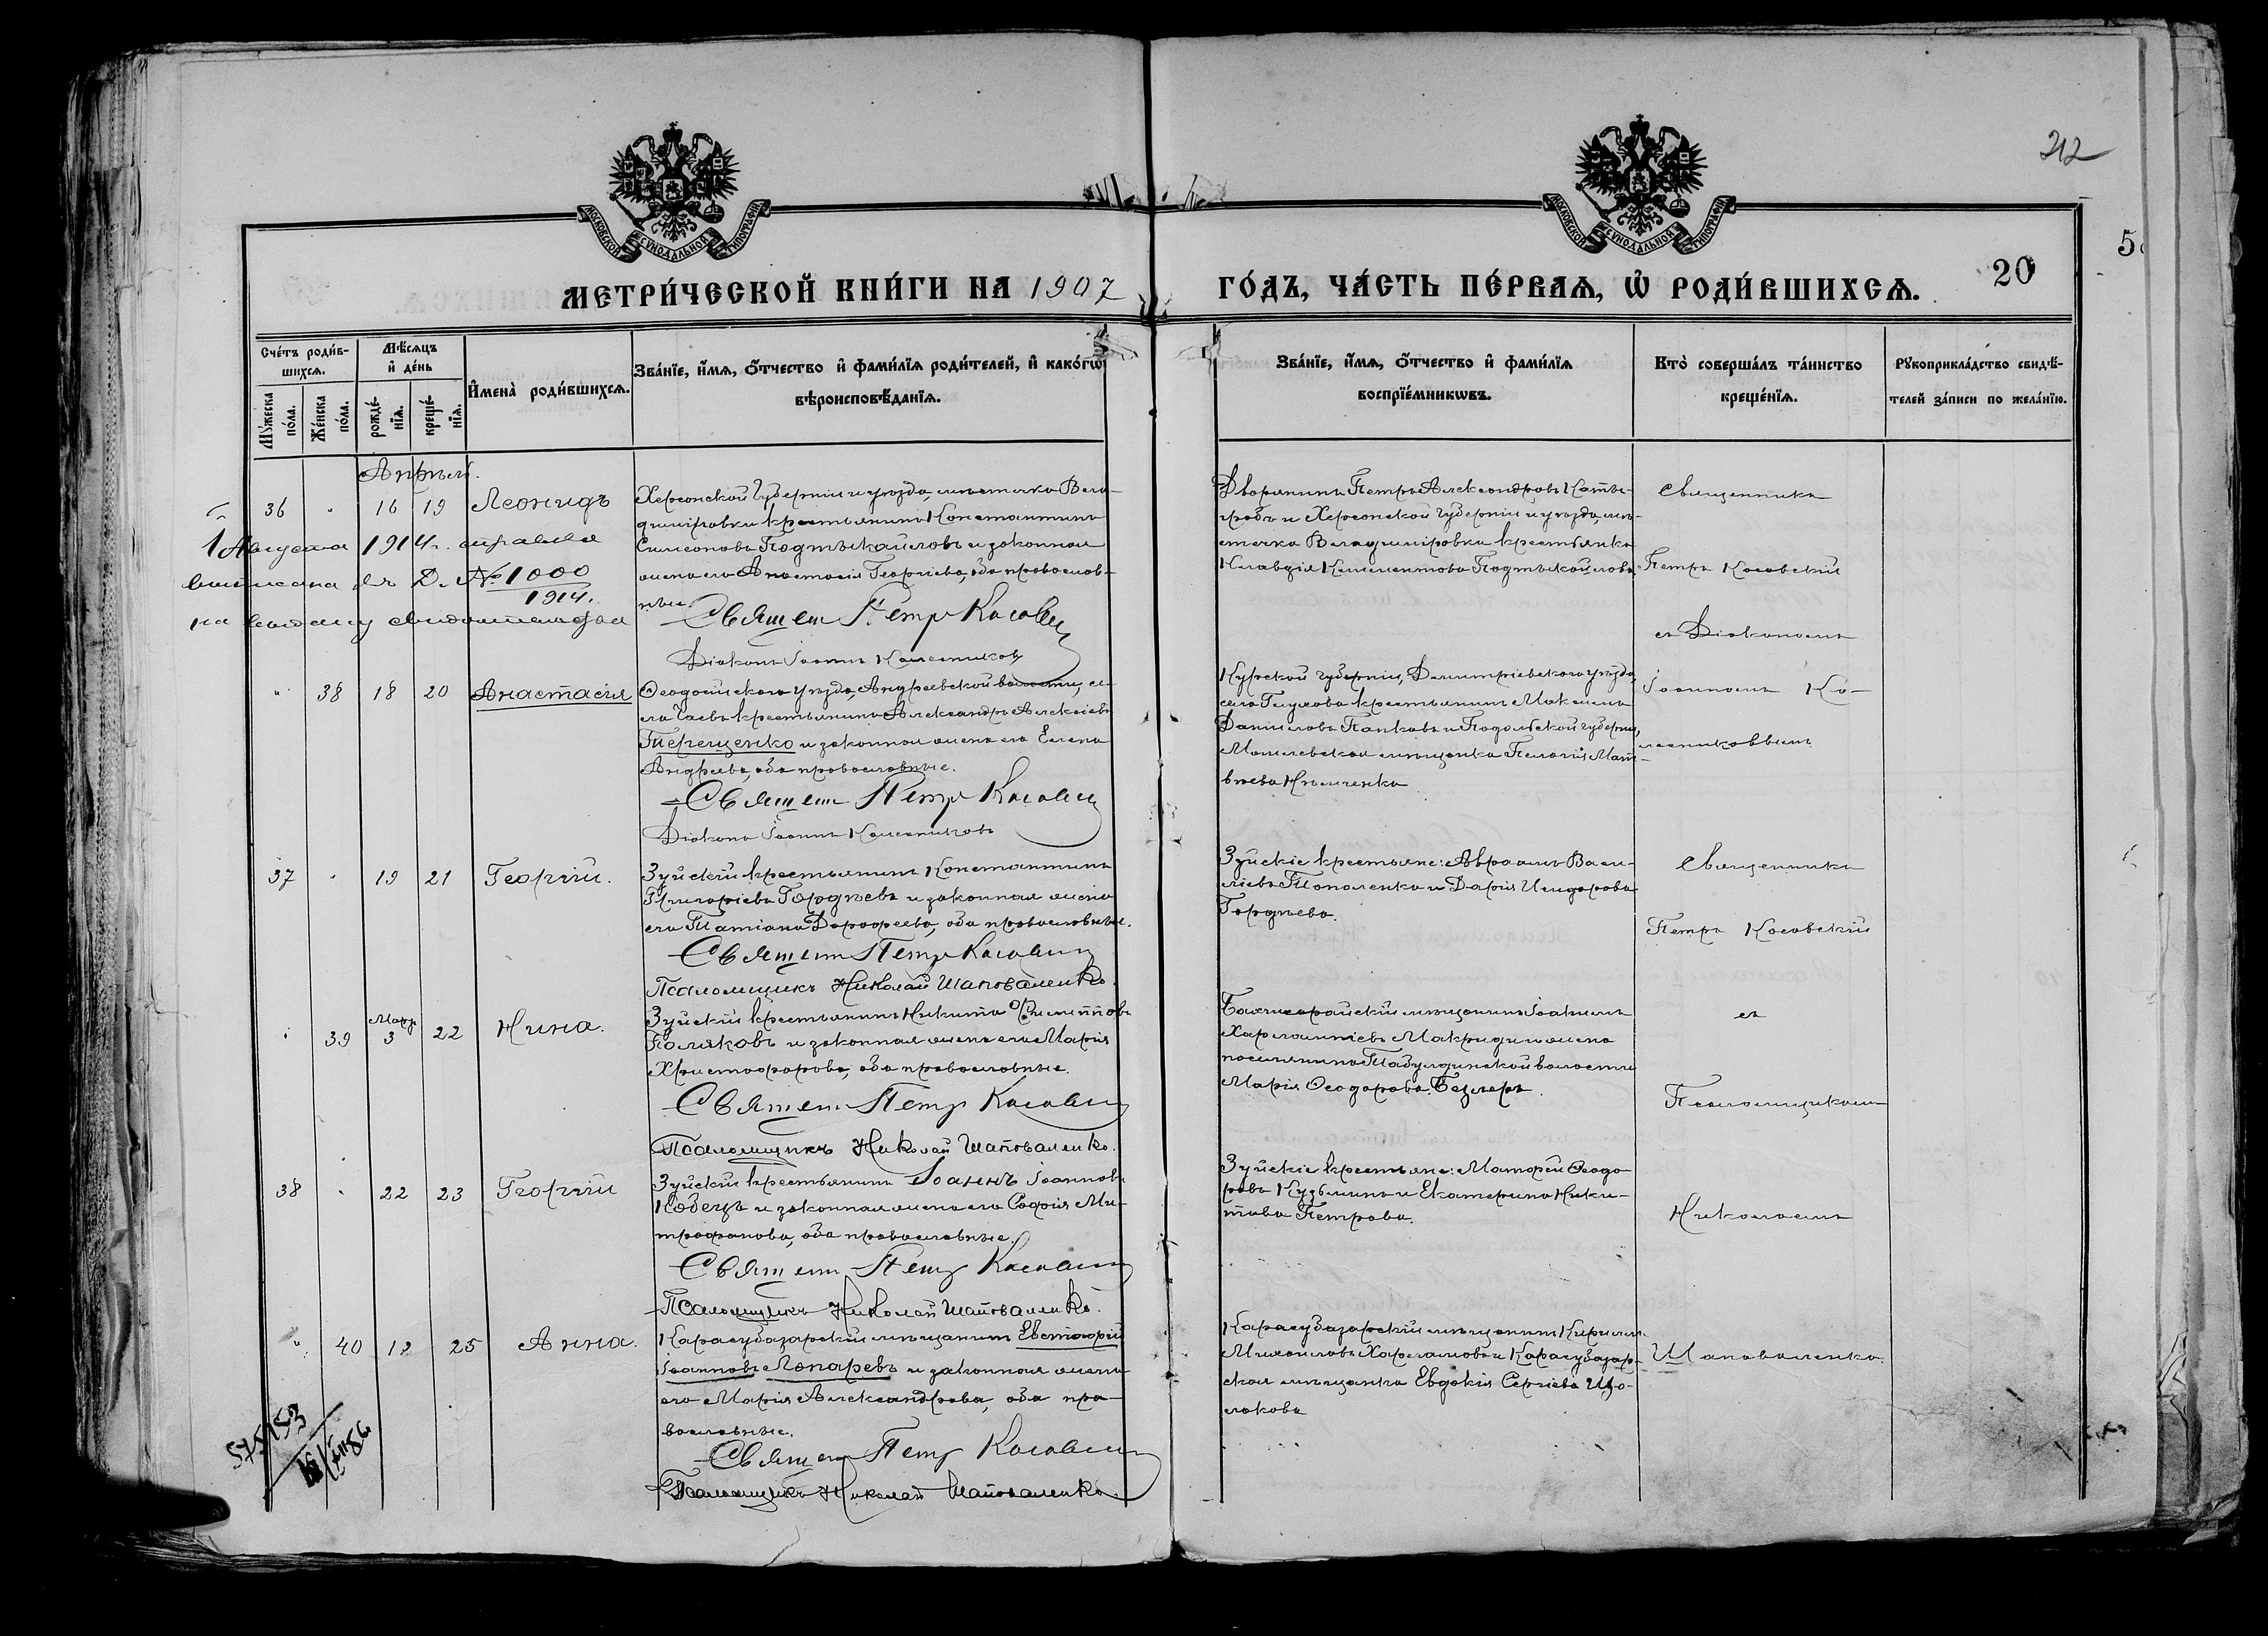 212
МОСКОВСКОЙ СѴНОДАЛЬНОЙ ТИПОГРАФІИ
МОСКОВСКОЙ СѴНОДАЛЬНОЙ ТИПОГРАФІИ
МЕТРИ́ЧЕСКОЙ КНИ́ГИ НА 1907
ГО́ДЪ, ЧА́СТЬ ПЕ́РВАѦ, Ѡ РОДИ́ВШИХСѦ.
20
Сче́тъ роди́в-
шихсѧ.
Мꙋ́жеска по́ла.
Же́нска по́ла.
Мѣ́сѧцъ и де́нь
рожде́-нїѧ.
креще́-нїѧ.
И҆мена̀ роди́вшихсѧ.
Зва́нїе, и҆́мѧ, ѻ҆́тчество и҆ фами́лїѧ роди́телей, и҆ како́гѡ
вѣроисповѣ́данїѧ.
Зва́нїе, и҆́мѧ, ѻ҆́тчество и҆ фами́лїѧ
воспрїе́мникѡвъ.
Кто̀ соверша́лъ та́инство
креще́нїѧ.
Рꙋкоприкла́дство свидѣ́-
телей за́писи по жела́нїю.
Апрѣль.
36 " 16 19 Леонидъ
Херсонской Губерніи и уѣзда, мѣстечка Вла-
димировки крестьянинъ Константинъ
Симеоновъ Подтыкайловъ и законная
жена его Анастасія Георгіева, оба православ-
ные.
Священ Петръ Косовскій
Діаконъ Іоаннъ Колесниковъ
1 Августа 1914 г. справка
выписана въ Д. № 1000
1914.
на выдачу свидѣтельства
Дворянинъ Петръ Александровъ
и Херсонской Губерніи и уѣзда, мѣ-
стечка Владимировки крестьянка
Клавдія Климентова Подтыкайлова.
Священникъ
Петръ Косовскій
съ Діакономъ
" 38 18 20 Анастасія
Ѳеодосійскаго уѣзда, Андреевской волости, се-
ла крестьянинъ Александръ Алексіевъ
Терещенко и законная жена его Елена
Андреева, оба православные.
Священ Петръ Косовскій
Діаконъ Іоаннъ Колесниковъ
Курской губерніи, Дмитріевскаго уѣзда,
села Глухова крестьянинъ Максимъ
Даниловъ Панковъ и Подольской губерніи,
Могилевская мѣщанка Пелагія Мат-
вѣева Нѣмченко
Іоанномъ Ко-
лесниковымъ
37 " 19 21 Георгій.
Зуйскій крестьянинъ Константинъ
Григоріевъ Гордѣевъ и законная жена
его Татіана Дорофеева, оба православные.
Священ Петръ Косовскій
Псаломщикъ Николай Шаповаленко.
Зуйскіе крестьяне: Авраамъ Васи-
ліевъ Тополенко и Дарія Исидорова
Гордѣева.
Священникъ
Петръ Косовскій
" 39 Март 3 22 Нина.
Зуйскій крестьянинъ Никита Филипповъ
Поляковъ и законная жена его Марія
Христофорова, оба православные.
Священ Петръ Косовскій
Псаломщикъ Николай Шаповаленко.
Бахчисарайскій мѣщанинъ Іоакимъ
Харлампіевъ Макриди и жена
поселянина Табулдинской волости
Марія Ѳеодорова Безлеръ.
съ
Псаломщикомъ
38 " 22 23 Георгій
Зуйскій крестьянинъ Іоаннъ Іоанновъ
Кобецъ и законная жена его Софія Ми-
трофанова, оба православные.
Священ Петръ Косовскій
Псаломщикъ Николай Шаповаленко.
Зуйскіе крестьяне: Матфей Ѳеодо-
ровъ Кузьминъ и Екатерина Ники-
това Петрова.
Николаемъ
" 40 12 25 Анна.
Карасубазарскій мѣщанинъ Евстафій
Іоанновъ Лопаревъ и законная жена
его Марія Александрова, оба пра-
вославные.
Священ Петръ Косовскій
Псаломщикъ Николай Шаповаленко.
Карасубазарскій мѣщанинъ Кириллъ
Михаиловъ Харламовъ и Карасубазар-
ская мѣщанка Евдокія Сергіева
Шаповаленко.